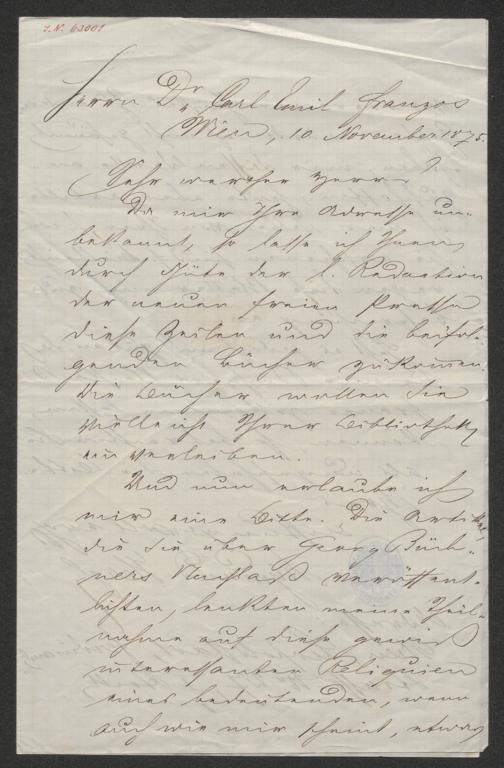 I.N. 63001
Herrn Dr. Carl Emil Franzos
Wien, 10 November 1875.
Sehr werther Herr!
Da mir Ihre Adresse un-
bekannt, so lasse ich Ihnen
durch Güte der l. Redaction
der neuen freien Presse
diese Zeilen und die beifol-
genden Bücher zukommen.
Die Bücher wollen Sie
vielleicht Ihrer Bibliothek
einverleiben.
Und nun erlaube ich
mir eine Bitte. Die Artikel,
die Sie über Georg Büch-
ners Nachlaß veröffent-
lichten, lenkten meine Theil-
nahme auf diese gewiß
interessanten Reliquien
eines bedeutenden, wenn
auch wie mir scheint, etwas